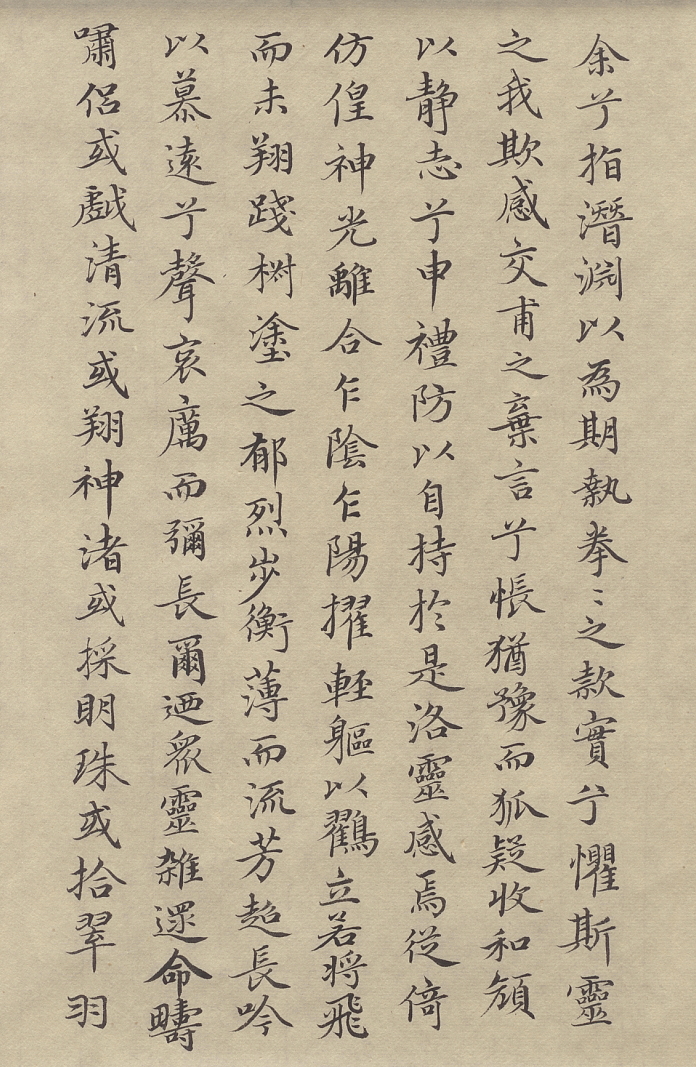 余兮指潛淵以為期執拳〻之款實兮懼斯靈
之我欺感交甫之棄言兮悵猶豫而狐疑收和顏
以静志兮申禮防以自持於是洛靈感焉從倚
仿偟神光離合乍陰乍陽擢輕軀以鸛立若將飛
而未翔踐椒塗之郁烈步衡薄而流芳超長吟
以慕遠兮聲哀厲而彌長爾迺眾靈雜遝命疇
嘯侶或戲清流或翔神渚或採明珠或拾翠羽